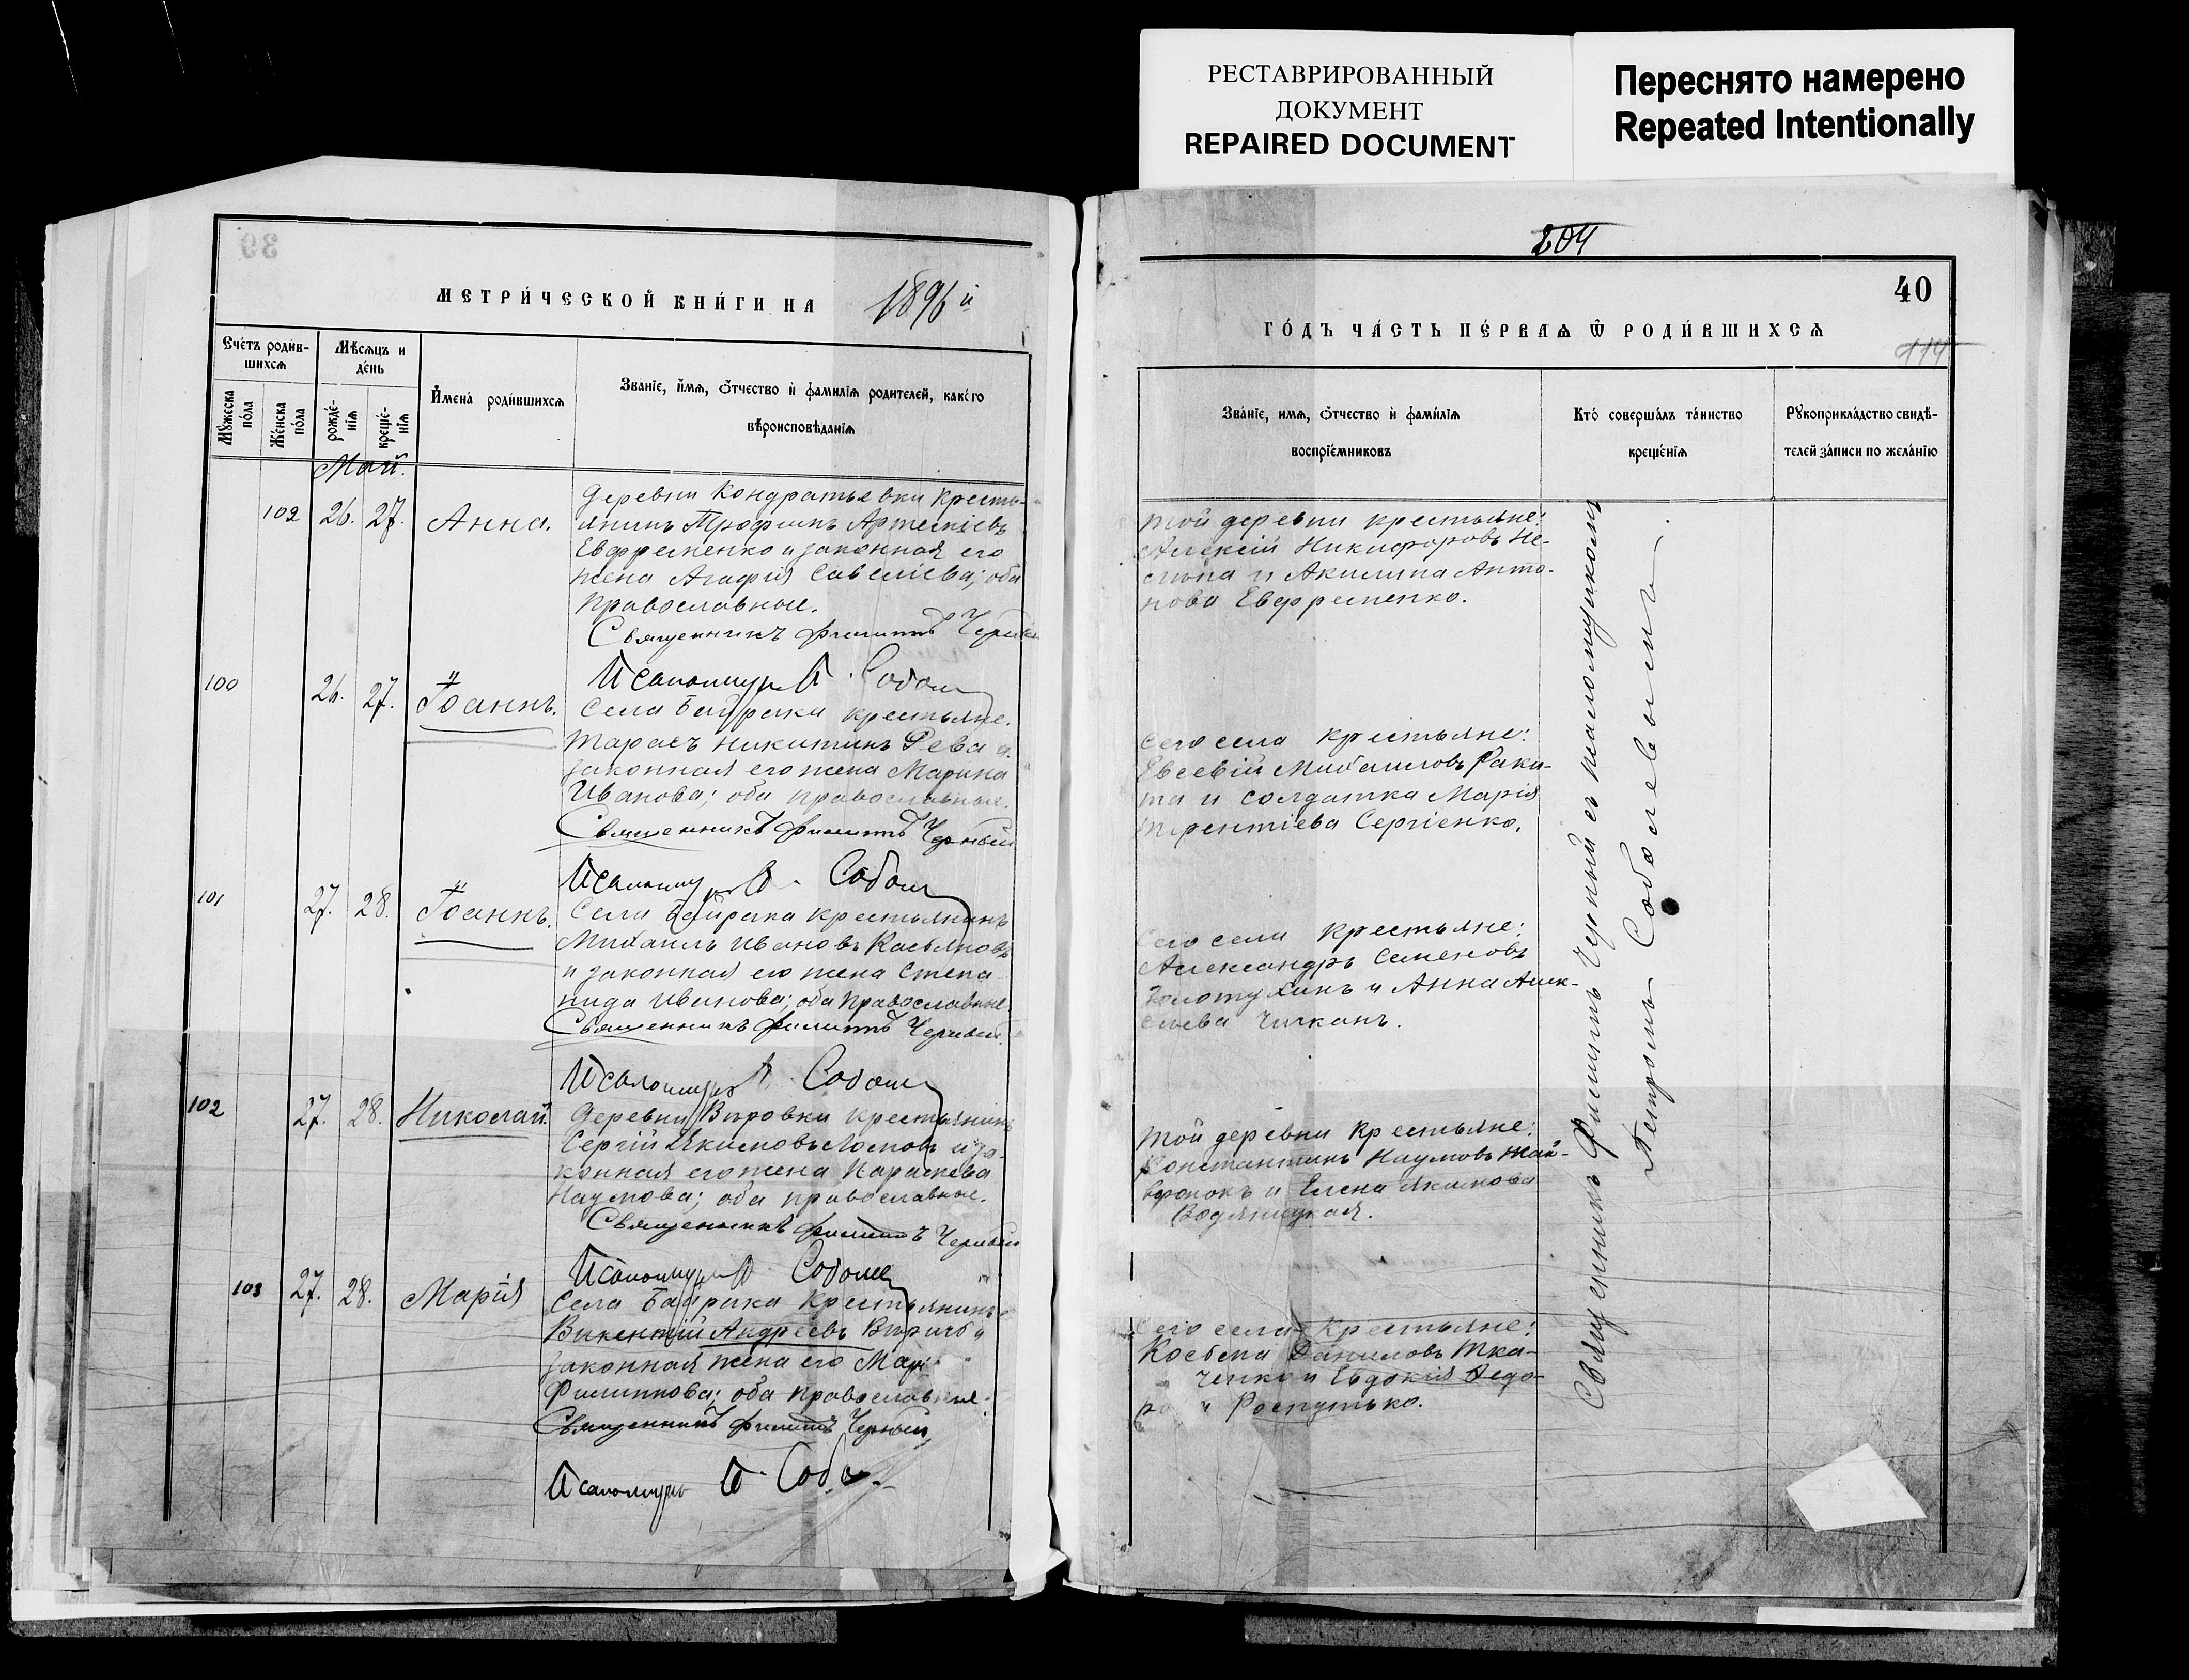 РЕСТАВРИРОВАННЫЙ
ДОКУМЕНТ
REPAIRED DOCUMENT
Переснято намерено
Repeated Intentionally
39
МЕТРИ́ЧЕСКОЙ КНИ́ГИ НА 1896 й
Сче́тъ роди́в-
шихсѧ
Мѣ́сѧцъ и
де́нь
Мꙋ́жеска
по́ла
Же́нска
по́ла
рожде́-
нїѧ
креще́-
нїѧ
И҆мена̀ роди́вшихсѧ
Зва́нїе, и҆́мѧ, ѻ҆́тчество и҆ фами́лїѧ роди́телей, како́гѡ
вѣроисповѣ́данїѧ
Май.
102 26. 27. Анна.
Деревни Кондратьевки кресть-
янинъ Трофимъ Артеміевъ
Евфременко и законная его
жена Агафія Савеліева; оба
православные.
Священникъ Филиппъ Черный
Псаломщикъ П. Собол
100 26. 27. Іоаннъ.
Села Байрака крестьяне.
Тарасъ Никитинъ Рева и
законная его жена Марина
Иванова; оба православные.
Священникъ Филиппъ Черный
Псаломщ П. Собол
101 27. 28. Іоаннъ.
Села Байрака крестьянинъ
Михаилъ Ивановъ Касьяновъ
и законная его жена Степа-
нида Иванова; оба православные
Священникъ Филиппъ Черный.
Псаломщ П. Собол
102 27. 28. Николай.
Деревни крестьянинъ
Сергій Якимовъ Ломовъ и за-
конная его жена Параскева
Наумова; оба православные.
Священникъ Филиппъ Черный
Псаломщ П. Собол
103 27. 28. Марія
Села Байрака Крестьянинъ
Викентій Андреевъ
законная жена его Марі
Филиппова; оба православные.
Священникъ Филиппъ Черный
Псаломщикъ П. Собо
204
40
114
ГО́ДЪ ЧА́СТЬ ПЕ́РВАѦ Ѽ РОДИ́ВШИХСѦ
Зва́нїе, имѧ, ѻ҆́тчество и҆ фами́лїѧ
воспрїе́мниковъ
Кто̀ соверша́лъ та́инство
креще́нїѧ
Рꙋкоприкла́дство свидѣ́-
телей за́писи по жела́нїю
Той деревни крестьяне:
Алексій Никифоровъ Не-
и Акилина Анто-
нова Евфременко.
Сего села крестьяне:
Евсевій Михаиловъ Раки-
та и солдатка Марія
Терентіева Сергіенко.
Сего села крестьяне:
Александръ Семеновъ
Золотухинъ и Анна Алек-
сіева Чиканъ.
Той деревни Крестьяне:
Константинъ Наумовъ Жай-
воронокъ и Елена Якимова
Водяницкая.
Сего села Крестьяне:
Косьма Даниловъ Тка-
ченко и Евдокія Федо-
ро Роспутько.
Священникъ Филиппъ Черный съ псаломщикомъ
Петромъ Соболевымъ.